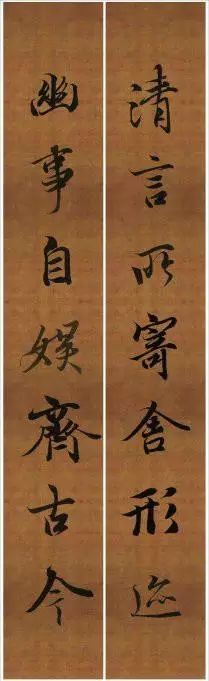 清言所寄舍形迹
幽事自娱齊古今